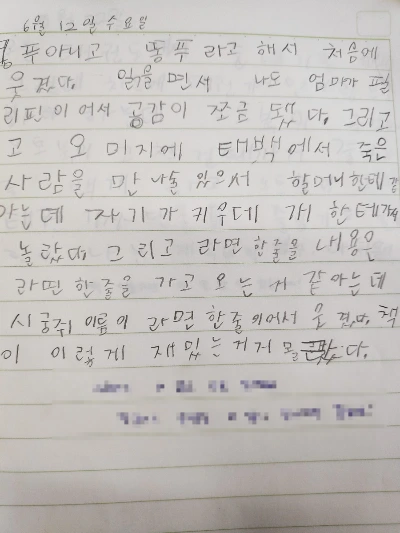 6월 12일 수요일
푸아니고 똥푸 라고 해서 처음에
웃겼다. 읽을면서 나도 엄마가 필
리핀이어서 공감이 쪼금 됐다. 그리고
고 오 미지에 태백에서 죽은
사람을 만나술 있으서 할머니한테 갈
아는데 자기가 키우데 개 한테가서
놀랐다. 그리고 라면 한줄을 내용은
라면 한줄을 가고 오는 게 같아는데
시궁쥐 이름이 라면 한줄 이어서 웃겼다. 책
이 이렇게 재밌는거지 몰랐다.